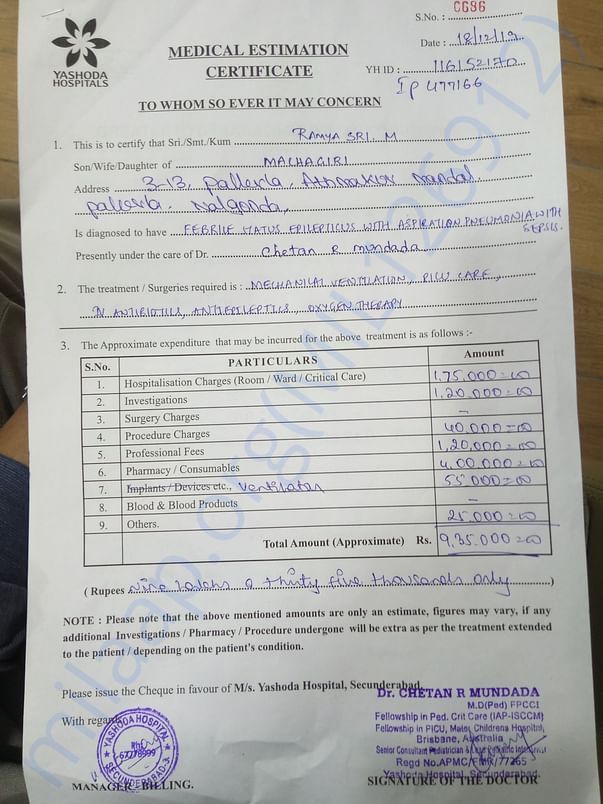 S.No. : 0696
YASHODA
HOSPITALS
MEDICAL ESTIMATION
CERTIFICATE
Date : 18/12/19
YH ID : 116152170
Ip 477166
TO WHOM SO EVER IT MAY CONCERN
1. This is to certify that Sri./Smt./Kum RAMYA SRI. M
Son/Wife/Daughter of MALHAGIRI
Address 3-13, pallerla, Athmakur mandal,
pallerla. Nalgonda,
Is diagnosed to have FEBRILE STATUS EPILEPTICUS WITH ASPIRATION PNEUMONIA WITH
SEPSIS.
Presently under the care of Dr. Chetan R mundada
2. The treatment / Surgeries required is : MECHANICAL VENTILATION, PICU CARE,
IV ANTIBIOTICS, ANTIEPILEPTICS, OXYGEN THERAPY
3. The Approximate expenditure that may be incurred for the above treatment is as follows :-
S.No. PARTICULARS Amount
1. Hospitalisation Charges (Room / Ward / Critical Care) 1,75,000=00
2. Investigations 1,20,000=00
3. Surgery Charges –
4. Procedure Charges 40,000=00
5. Professional Fees 1,20,000=00
6. Pharmacy / Consumables 4,00,000=00
7. Implants / Devices etc., Ventilator 55,000=00
8. Blood & Blood Products –
9. Others. 25,000=00
Total Amount (Approximate) Rs. 9,35,000=00
( Rupees Nine Lakhs & thirty five thousands only )
NOTE : Please note that the above mentioned amounts are only an estimate, figures may vary, if any
additional Investigations / Pharmacy / Procedure undergone will be extra as per the treatment extended
to the patient / depending on the patient's condition.
Please issue the Cheque in favour of M/s. Yashoda Hospital, Secunderabad.
With regards
YASHODA HOSPITAL
67778999
SECUNDERABAD-3
MANAGER - BILLING.
Dr. CHETAN R MUNDADA
M.D(Ped) FPCCI
Fellowship in Ped. Crit Care (IAP-ISCCM)
Fellowship in PICU, Mater Childrens Hospital,
Brisbane, Australia
Senior Consultant Pediatrician &
Regd No.APMC/FMR/77265
Yashoda Hospital, Secunderabad.
SIGNATURE OF THE DOCTOR
milaap.org(MIL126912)